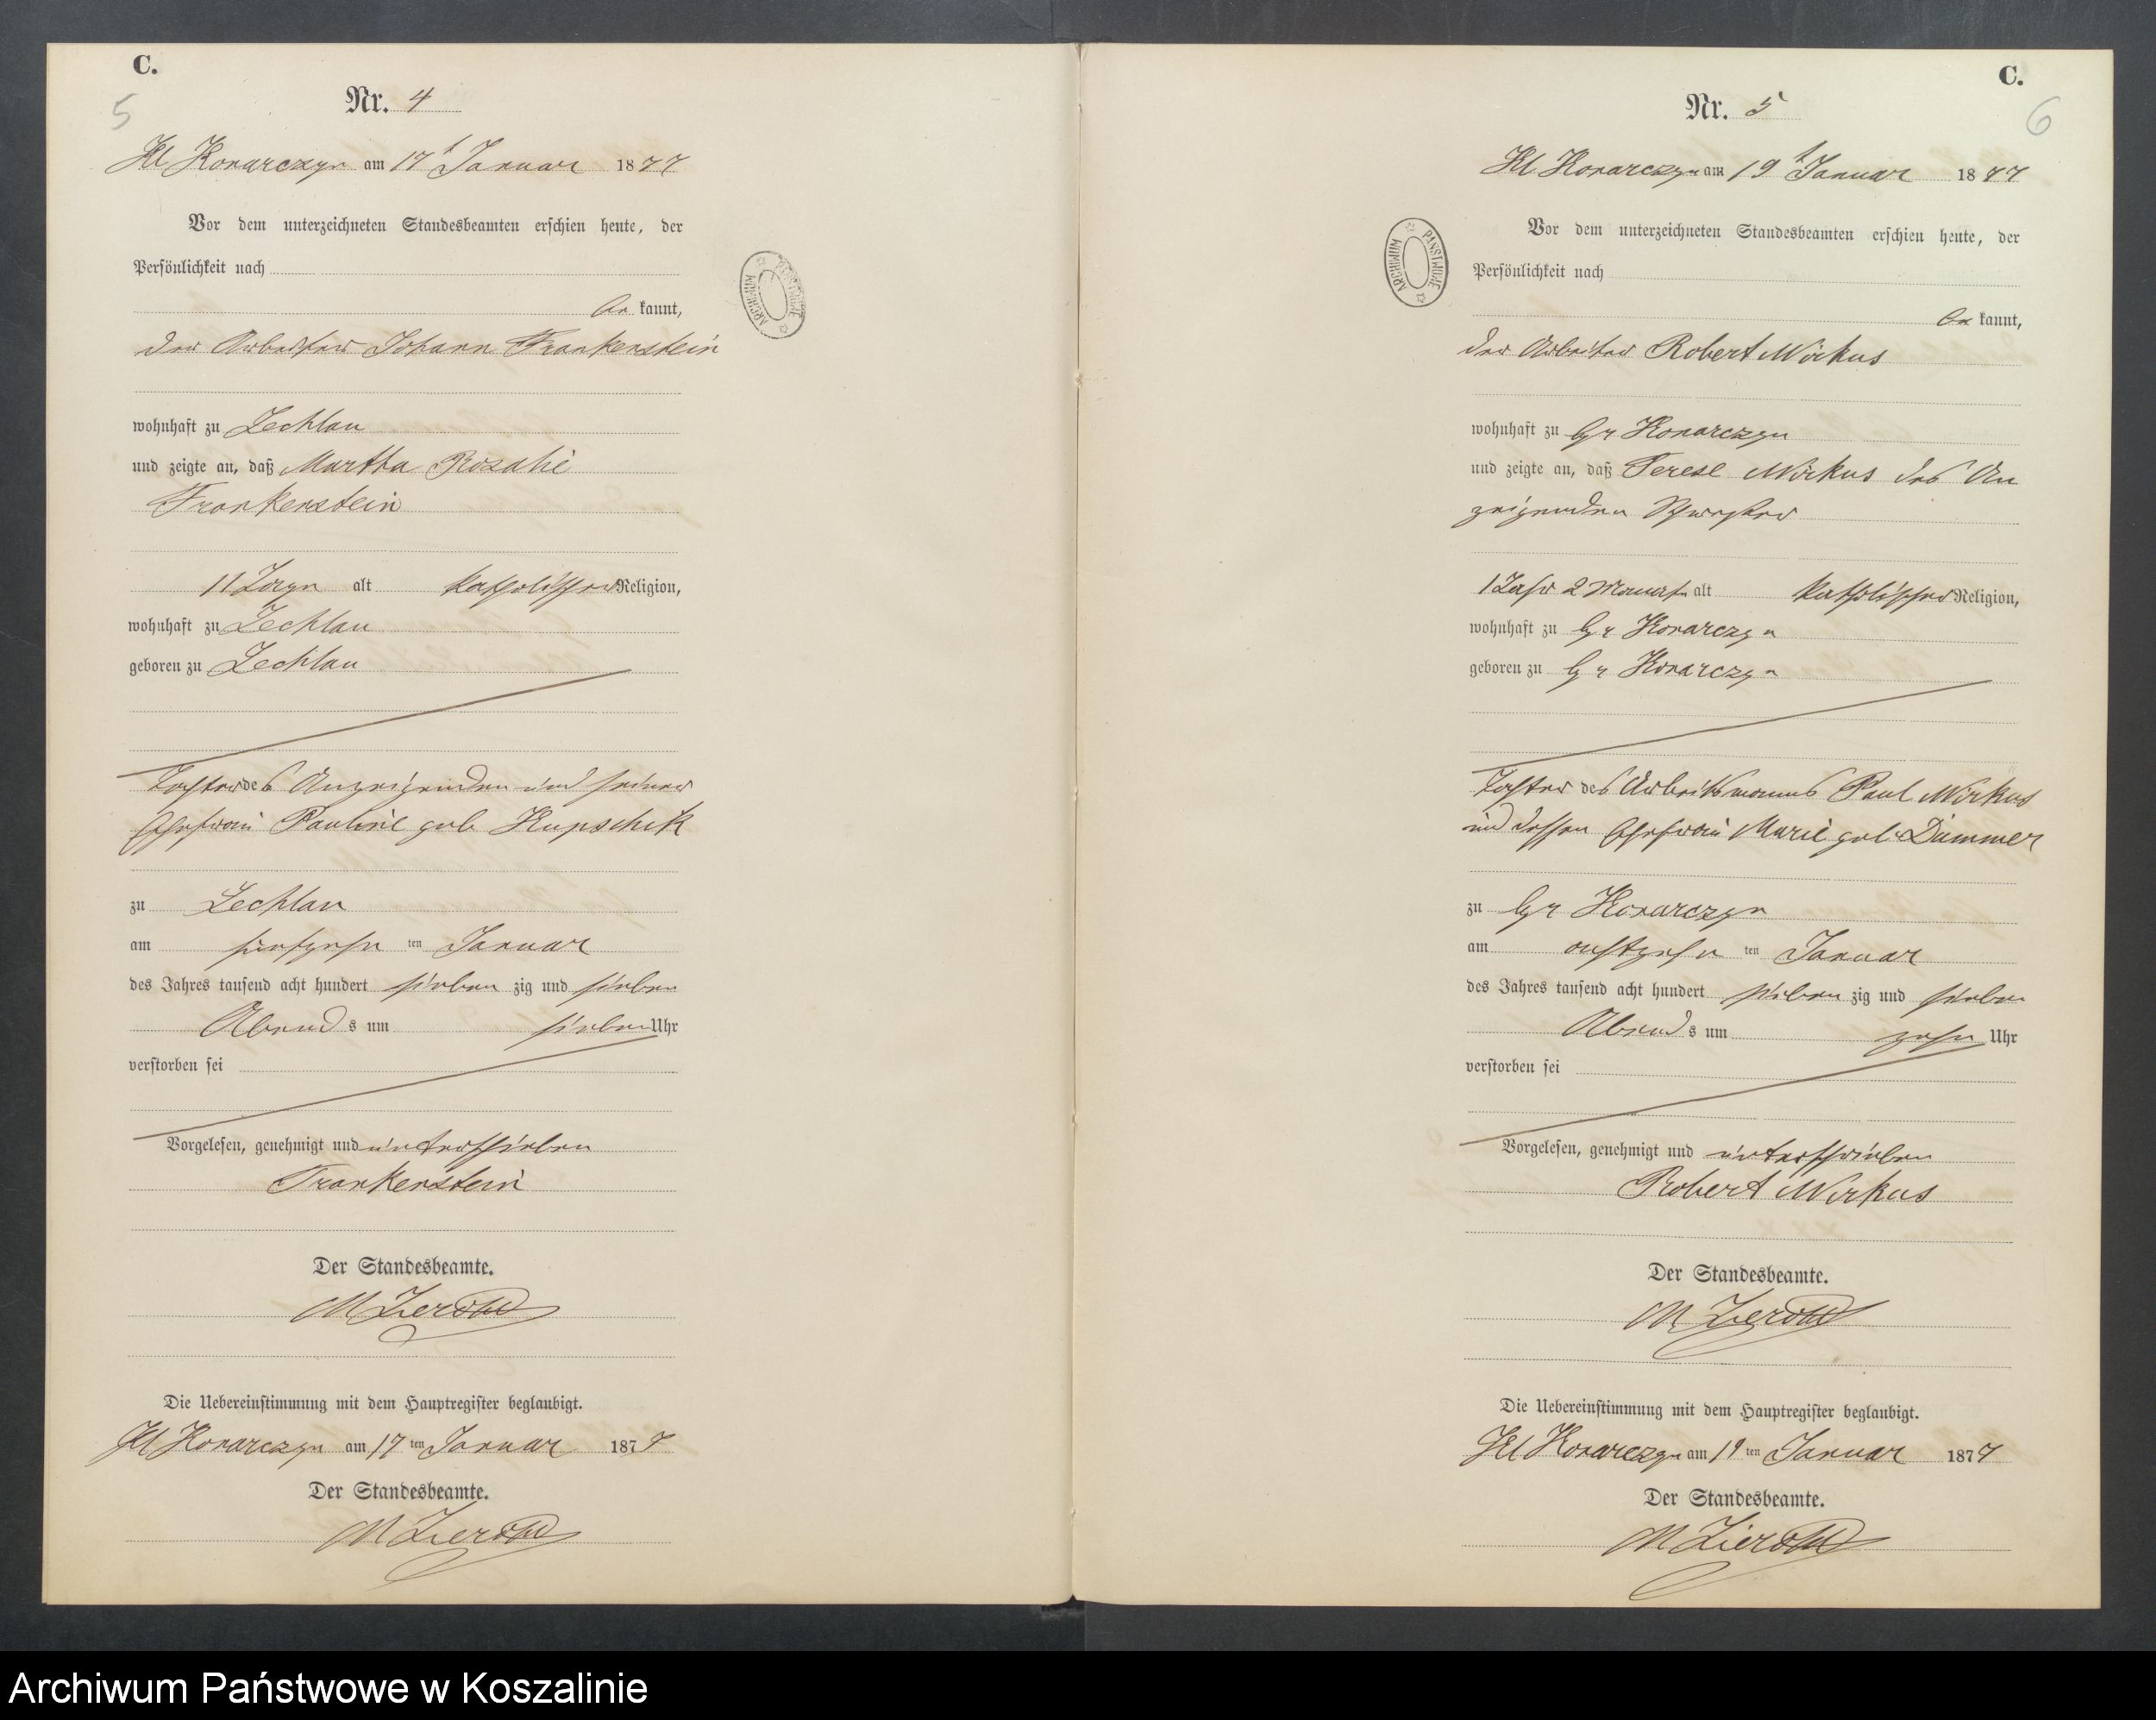 C.
5
Nr. 4
Kl Konarczyn am 17t Januar 1877
Vor dem unterzeichneten Standesbeamten erschien heute, der
Persönlichkeit nach
be kannt,
der Arbeiter Johann Frankenstein
wohnhaft zu Zechlau
und zeigte an, daß Martha Rosalie
Frankenstein
11 Tage alt katholischer Religion,
wohnhaft zu Zechlau
geboren zu Zechlau
Tochter des Anzeigenden und seiner
Ehefrau Pauline geb Kupschik
zu Zechlau
am fünfzehn ten Januar
des Jahres tausend acht hundert sieben zig und sieben
Abend s um sieben Uhr
verstorben sei
Vorgelesen, genehmigt und unterschrieben
Frankenstein
Der Standesbeamte.
M Zieroth
Die Uebereinstimmung mit dem Hauptregister beglaubigt.
Kl Konarczyn am 17 ten Januar 1877
Der Standesbeamte.
M Zieroth
ARCHIWUM PAŃSTWOWE
C.
6
Nr. 5
Kl Konarczyn am 19t Januar 1877
Vor dem unterzeichneten Standesbeamten erschien heute, der
Persönlichkeit nach
be kannt,
der Arbeiter Robert Wirkus
wohnhaft zu Gr Konarczyn
und zeigte an, daß Terese Wirkus des An
zeigenden Schwester
1 Jahr 2 Monate alt katholischer Religion,
wohnhaft zu Gr Konarczyn
geboren zu Gr Konarczyn
Tochter des Arbeitsmanns Paul Wirkus
und dessen Ehefrau Marie geb Dümmer
zu Gr Konarczyn
am achtzehn ten Januar
des Jahres tausend acht hundert sieben zig und sieben
Abend s um zehn Uhr
verstorben sei
Vorgelesen, genehmigt und unterschrieben
Robert Wirkus
Der Standesbeamte.
M Zieroth
Die Uebereinstimmung mit dem Hauptregister beglaubigt.
Kl Konarczyn am 19 ten Januar 1877
Der Standesbeamte.
M Zieroth
ARCHIWUM PAŃSTWOWE
Archiwum Państwowe w Koszalinie